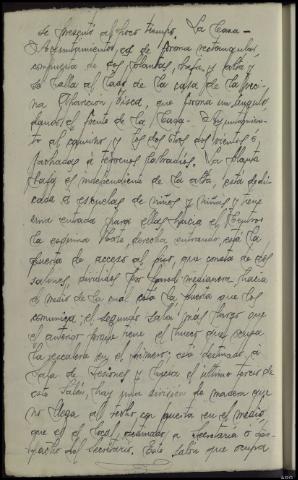 se presentó al poco tiempo. La Casa-
Ayuntamiento, es de forma rectangular,
compuesta de dos plantas, baja y alta y
se halla al lado de la casa de la veci-
na Asunción que forma un ángulo
dando el frente de la Casa-Ayuntamien-
to al camino, y los dos otros vientos ó
fachadas á terrenos labradíos. La planta
baja es independiente de la alta, está dedi-
cada á escuelas de niños y niñas y tiene
una entrada para ellas hacia el
la segunda puerta, derecha entrando, está la
puerta de acceso al piso, que consta de dos
salones, divididos por pared medianera, hacia
el medio de la cual está la puerta que los
comunica; el segundo salón más largo que
el anterior porque tiene el hueco que ocupa
la escalera en el primero; está destinado á
Sala de Sesiones y hacia el último tercio de
este salón hay una división de madera que
no llega al techo con puerta en el medio,
que es el local destinado á Secretaría ó des-
pacho del Secretario. Este salón que ocupa